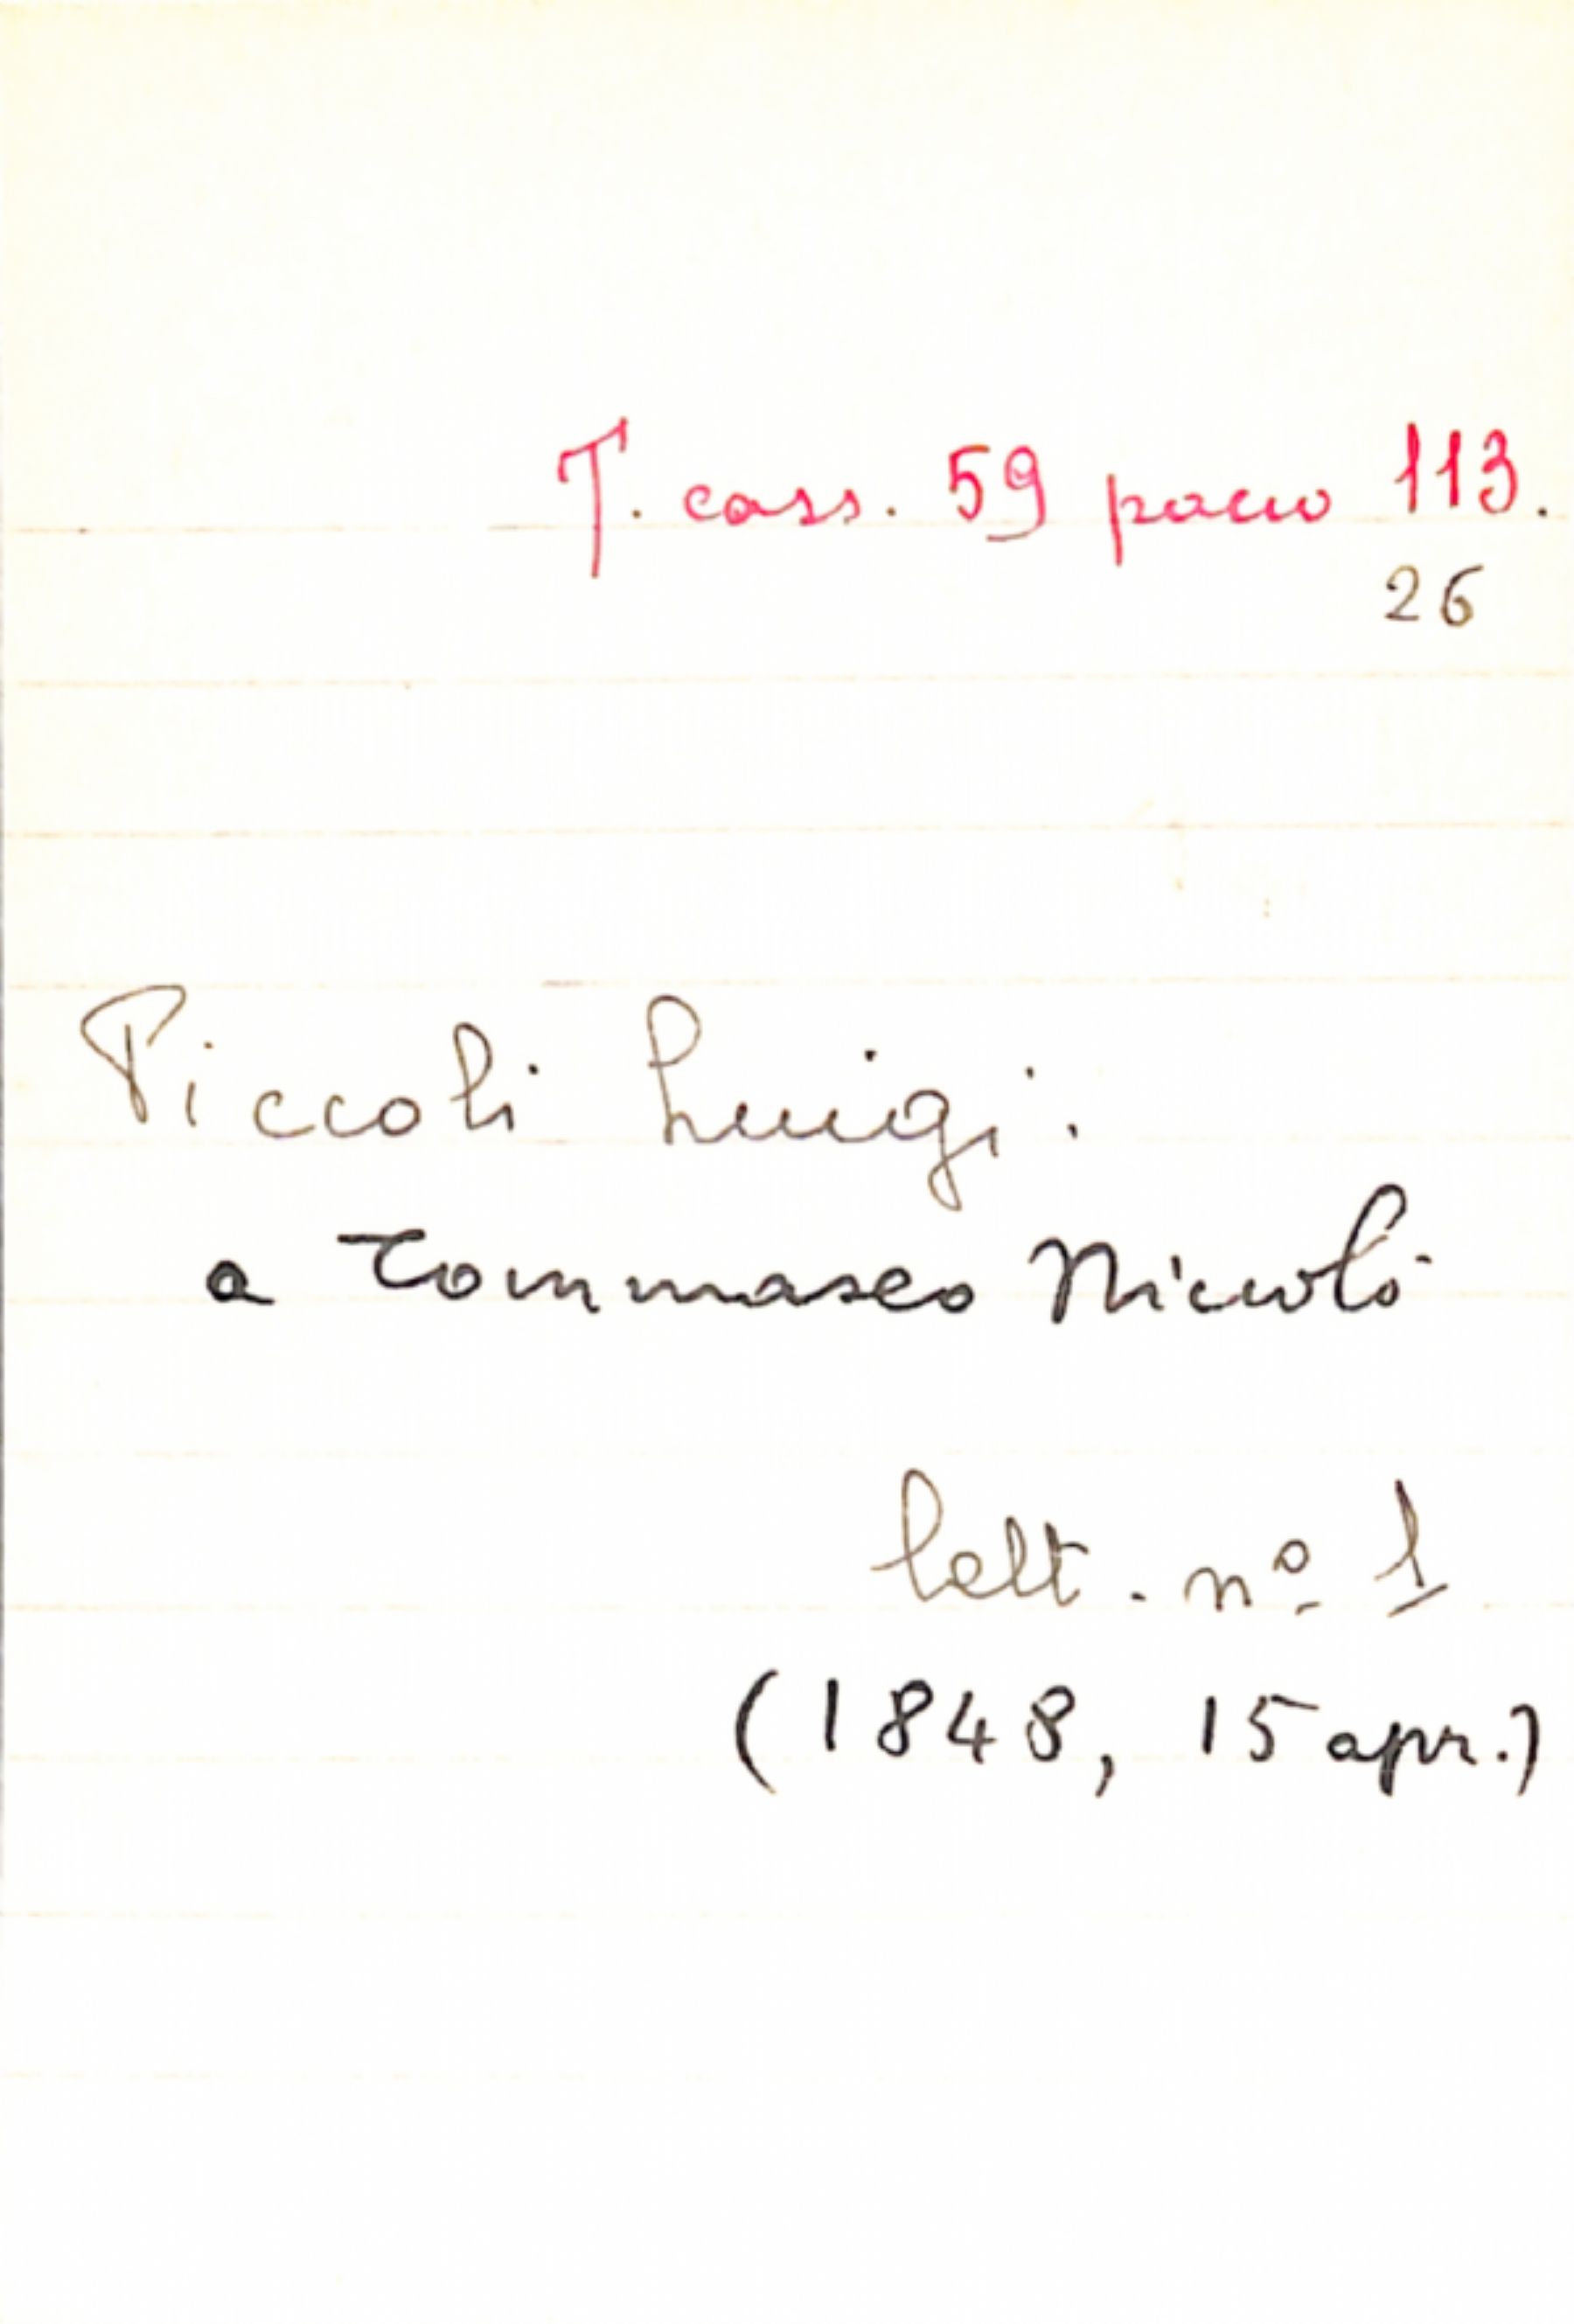 T. cass. 59 pacco 113.
26
Piccoli Luigi.
a Tommaseo Niccolò
lett. nº 1
(1848, 15 apr.)